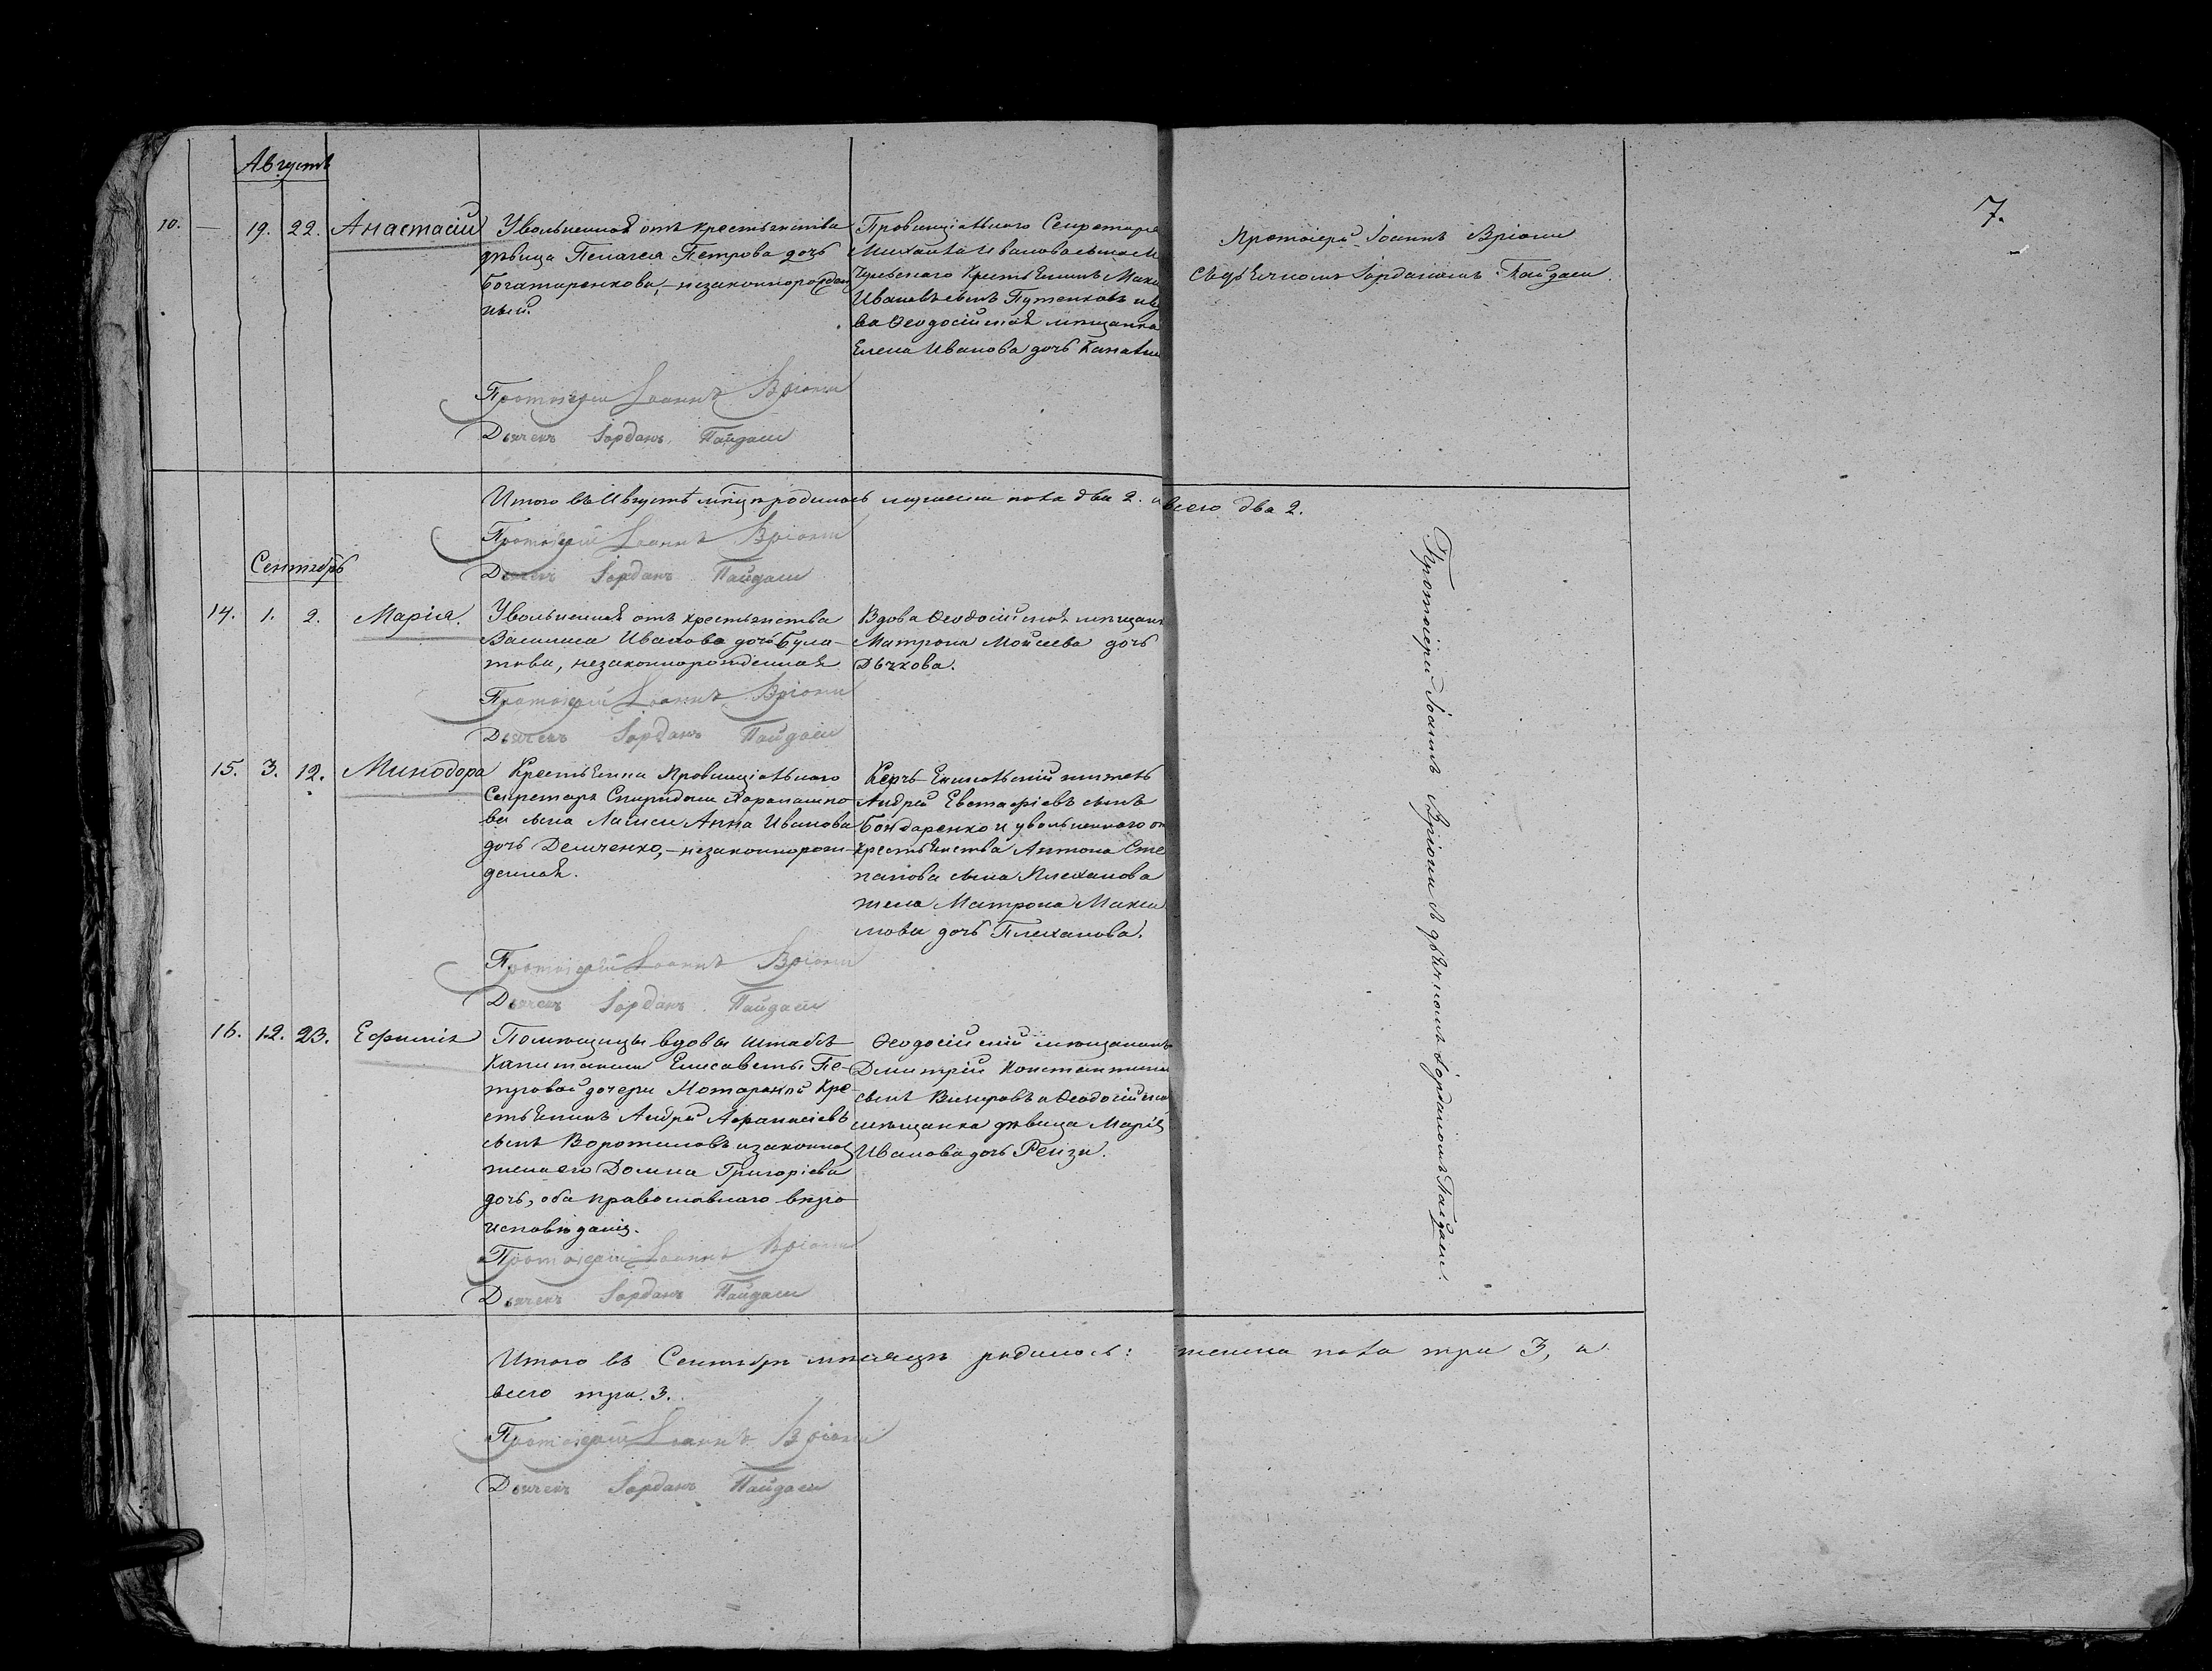 7.
Августъ
10. — 19. 22. Анастасій
Увольненная отъ крестьянства
дѣвица Пелагея Петрова дочь
Богатыренкова, – незаконнорожден
ный.
Провинціальнаго Секретаря
Михаила Иванова сына
Крестьянинъ
Ивановъ сынъ Путенковъ и в
ва Ѳеодосійская мѣщанка
Елена Иванова дочь
Протоіерей Іоаннъ Вріони
съ дьячкомъ Іорданомъ Пайдаси
Протоіерей Іоаннъ Вріони
Дьячекъ Іорданъ Пайдаси
Итого въ Августѣ мѣсяцѣ родилось мужеска пола два 2. а всего два 2.
Протоіерей Іоаннъ Вріони
Дьячекъ Іорданъ Пайдаси
Сентябрь
14. 1. 2. Марія.
Увольненная отъ крестьянства
Васса Иванова дочь Була-
това, незаконнорожденная
Вдова Ѳеодосійская мѣщанк
Матрона Моисеева дочь
Дьячкова.
Протоіерей Іоаннъ Вріони
Дьячекъ Іорданъ Пайдаси
15. 3. 12. Минодора
Крестьянка Провинціальнаго
Секретаря Спиридона
ва сына Анна Иванова
дочь Демченко, – незаконнорож-
денная.
Керчь-Еникольскій житель
Андрей Евстафіевъ сынъ
Бондаренко и увольненнаго от
крестьянства Антона Сте
панова сына Плеханова
жена Матрона Макси
мова дочь Плеханова.
Протоіерей Іоаннъ Вріони
Дьячекъ Іорданъ Пайдаси
16. 12. 23. Ефимія
Помѣщицы вдовы Штабсъ
Капитанши Елисаветы Пе-
тровой дочери Нотарской Кре-
стьянинъ Андрей Афанасіевъ
сынъ Воротиловъ и законная
жена его Домна Григоріева
дочь, оба православнаго вѣро
исповѣданія.
Ѳеодосійскій мѣщанинъ
Дмитрій Константинов
сынъ и Ѳеодосійская
мѣщанка дѣвица Марія
Иванова дочь Рейзи.
Протоіерей Іоаннъ Вріони
Дьячекъ Іорданъ Пайдаси
Протоіерей Іоаннъ Вріони съ дьячкомъ Іорданомъ Пайдаси.
Итого въ Сентябрѣ мѣсяцѣ родилось: женска пола три 3, а
всего три. 3.
Протоіерей Іоаннъ Вріони
Дьячекъ Іорданъ Пайдаси